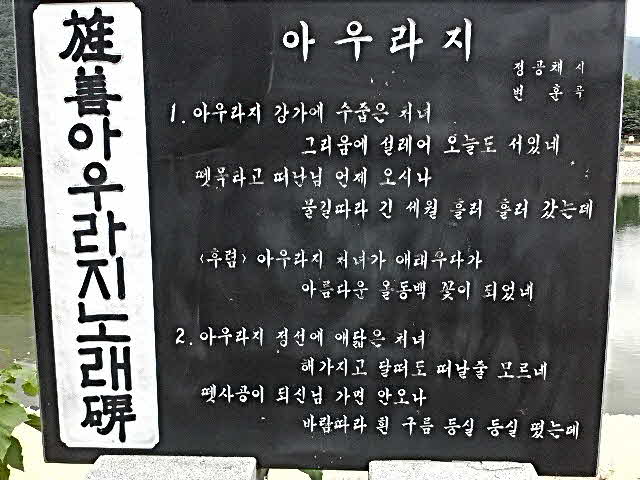 旌善아우라지노래碑
아우라지
정공채 시
변 훈 곡
1. 아우라지 강가에 수줍은 처녀
그리움에 설레어 오늘도 서있네
뗏목타고 떠난님 언제 오시나
물길따라 긴 세월 흘러 흘러 갔는데
(후렴) 아우라지 처녀가 애태우다가
아름다운 올동백 꽃이 되었네
2. 아우라지 정선에 애닯은 처녀
해가지고 달떠도 떠날줄 모르네
뗏사공이 되신님 가면 안오나
바람따라 흰 구름 둥실 둥실 떴는데